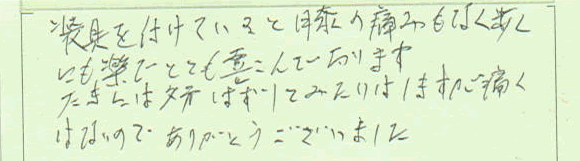 装具を付けていると膝の痛みもなく歩く
にも楽でとても喜こんでおります
たまには夕方はずしてみたりはしますが痛く
はないので ありがとうございました